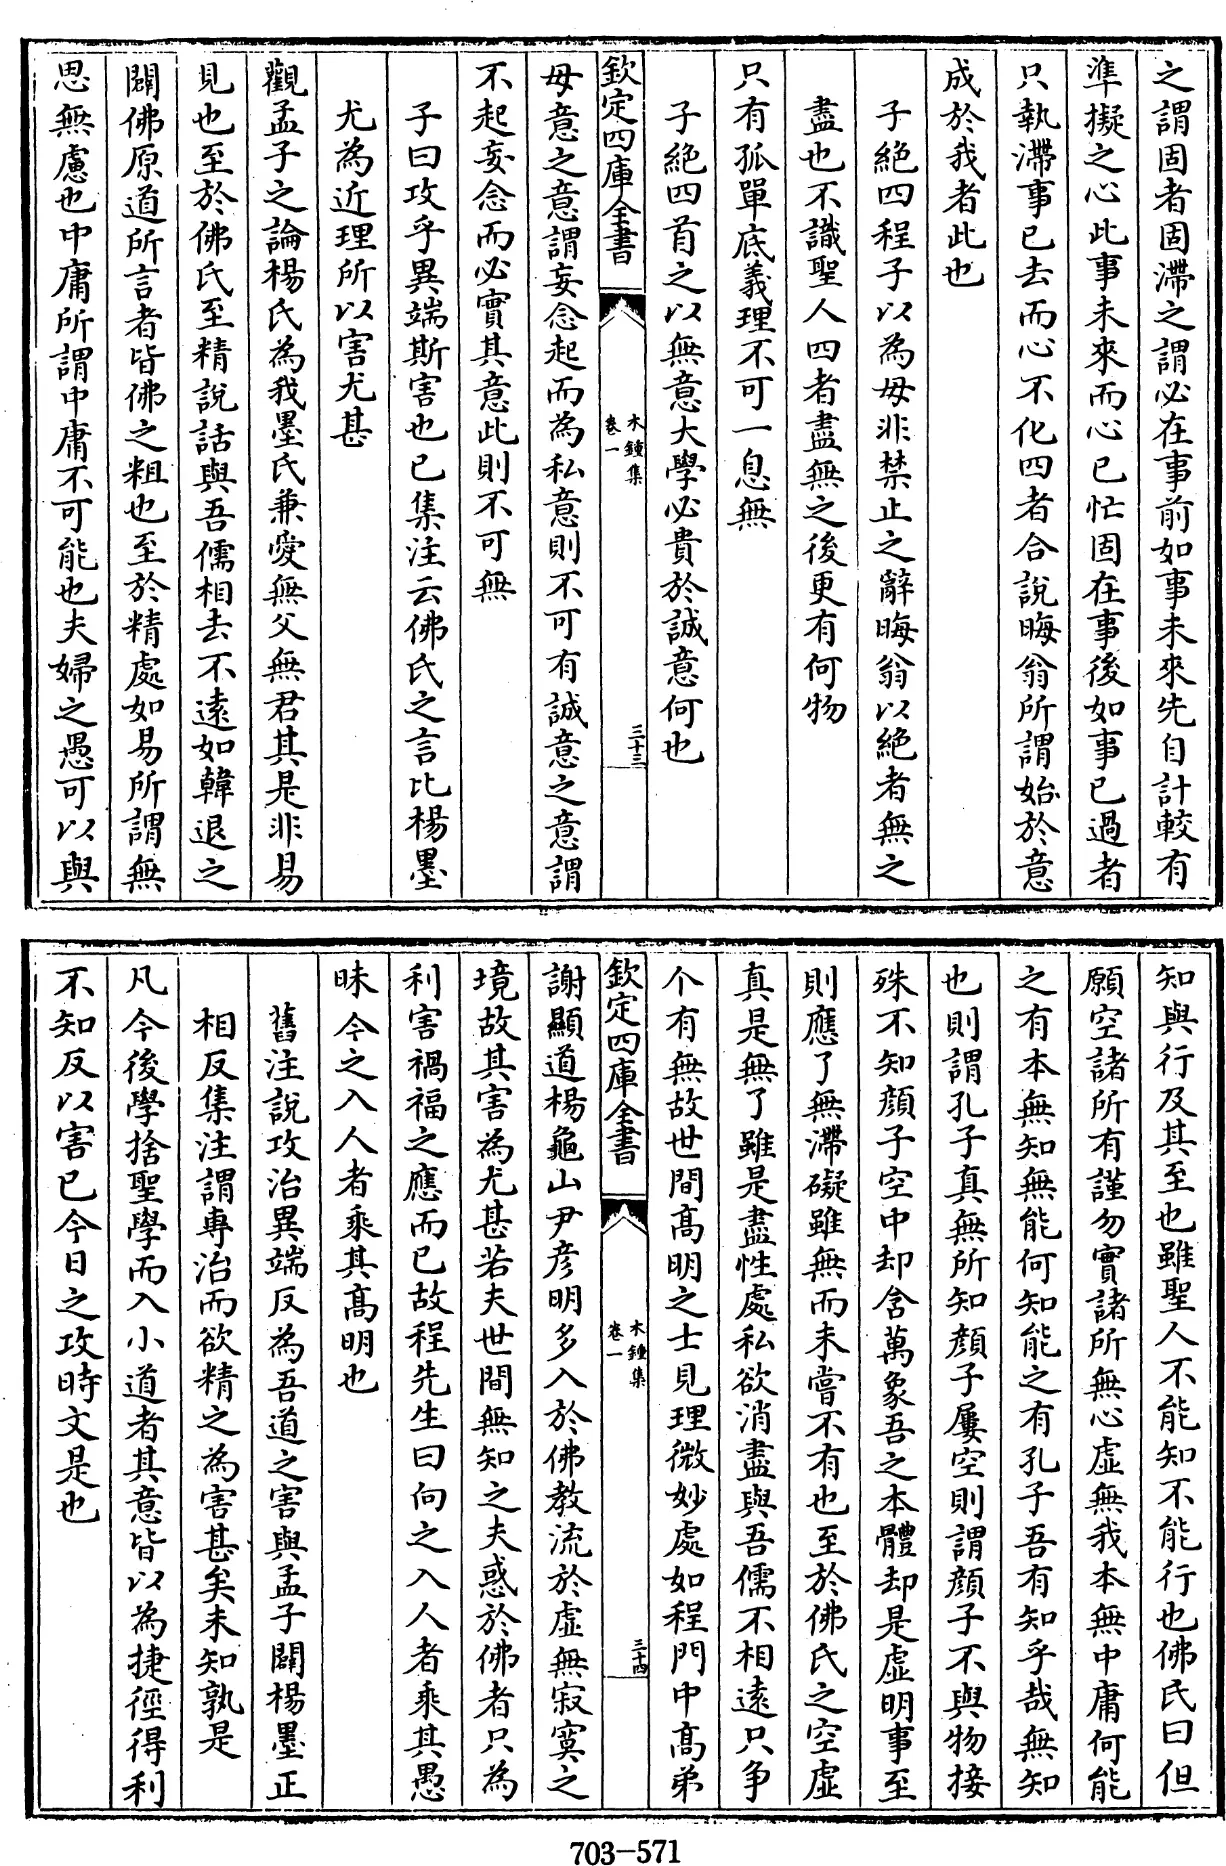 之謂固者固滯之謂必在事前如事未來先自計較有
準擬之心此事未來而心已忙固在事後如事已過者
只執滯事已去而心不化四者合說晦翁所謂始於意
成於我者此也
子絕四程子以為毋非禁止之辭晦翁以絕者無之
盡也不識聖人四者盡無之後更有何物
只有孤單底義理不可一息無
子絕四首之以無意大學必貴於誠意何也
欽定四庫全書
木鍾集
卷一
三十三
毋意之意謂妄念起而為私意則不可有誠意之意謂
不起妄念而必實其意此則不可無
子曰攻乎異端斯害也已集注云佛氏之言比楊墨
尤為近理所以害尤甚
觀孟子之論楊氏為我墨氏兼愛無父無君其是非易
見也至於佛氏至精說話與吾儒相去不遠如韓退之
闢佛原道所言者皆佛之粗也至於精處如易所謂無
思無慮也中庸所謂中庸不可能也夫婦之愚可以與
知與行及其至也雖聖人不能知不能行也佛氏曰但
願空諸所有謹勿實諸所無心虛無我本無中庸何能
之有本無知無能何知能之有孔子吾有知乎哉無知
也則謂孔子真無所知顏子屢空則謂顏子不與物接
殊不知顏子空中却含萬象吾之本體却是虛明事至
則應了無滯礙雖無而未嘗不有也至於佛氏之空虛
真是無了雖是盡性處私欲消盡與吾儒不相遠只争
个有無故世間高明之士見理微妙處如程門中高弟
欽定四庫全書
木鍾集
卷一
三十四
謝顯道楊龜山尹彦明多入於佛教流於虛無寂寞之
境故其害為尤甚若夫世間無知之夫惑於佛者只為
利害禍福之應而已故程先生曰向之入人者乘其愚
昧今之入人者乘其高明也
舊注說攻治異端反為吾道之害與孟子闢楊墨正
相反集注謂專治而欲精之為害甚矣未知孰是
凡今後學捨聖學而入小道者其意皆以為捷徑得利
不知反以害已今日之攻時文是也
703-571